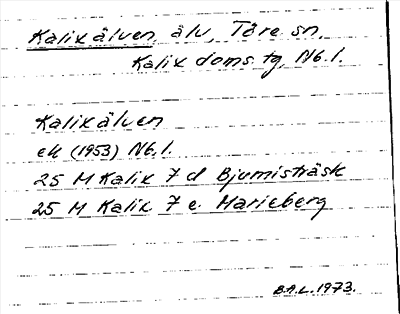 Kalixälven, älv, Töre sn,
Kalix doms. tg, Nb. l.
Kalixälven
ek (1953) Nb. l.
25 M Kalix 7 d Bjumisträsk
25 M Kalix 7 e. Marieberg
B.A.L. 1973.